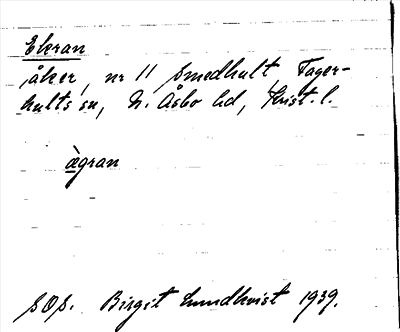 Ekran
åker, nr 11 Smedhult, Fager-
hults sn, N. Åsbo hd, Krist. l.
àgran
SOS. Birgit Lundkvist 1939.